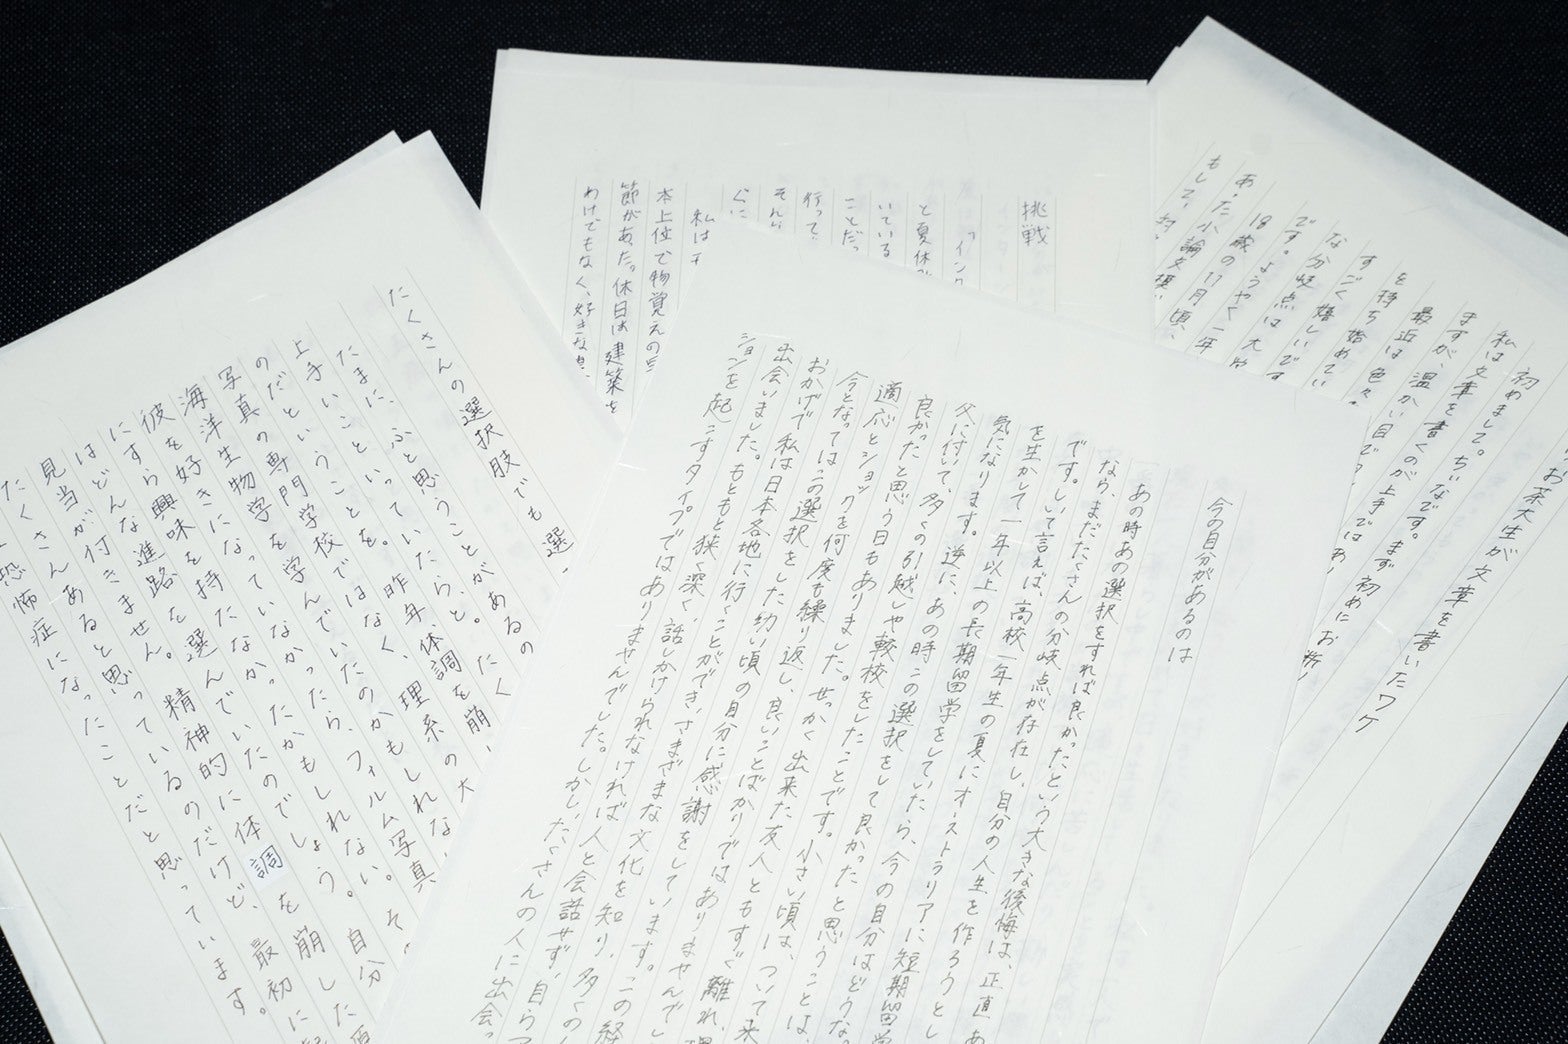 今の自分があるのは
あの時あの選択をすれば良かったという大きな後悔は、正直あ
なら、まだたくさんの分岐点が存在し、自分の人生を作ろうとし
です。しいて言えば、高校一年生の夏にオーストラリアに短期留学
を生かして一年以上の長期留学をしていたら、今の自分はどうな
気になります。逆に、あの時この選択をして良かったと思うことは、
父に付いて、多くの引越しや転校をしたことです。小さい頃は、ついて来
良かったと思う日もありました。せっかく出来た友人ともすぐ離れ、環
適応とショックを何度も繰り返し、良いことばかりではありませんでし
今となってはこの選択をした幼い頃の自分に感謝をしています。この経
おかげで私は日本各地に行くことができ、さまざまな文化を知り、多くの
出会いました。もともと狭く深く、話しかけられなければ人と会話せず、自らア
ションを起こすタイプではありませんでした。しかし、たくさんの人に出会っ
たくさんの選択肢でも 選
たまに、ふと思うことがあるの
上手いこといっていたらと。たく
のだということを。昨年、体調を崩
写真の専門学校ではなく、理系の大
海洋生物学を学んでいたのかもしれな
彼を好きになっていなかったら、フィルム写真
にすら興味を持たなかったかもしれない。そ
はどんな進路を選んでいたのでしょう。自分
見当が付きません。精神的に体調を崩した原
たくさんあると思っているのだけど、最初に
恐怖症になったことだと思っています。
挑戦
「イン
と夏休み
いている
ことだっ
行って
それ
ぐに
私は
本上位で物覚えの
節があった。休日は建築を
わけでもなく、好きな
お茶大生が文章を書いたワケ
初めまして。ちいなです。まず初めにお断り
私は文章を書くのが上手ではあ
ますが、温かい目で
最近は色々
を持ち始めてい
すごく嬉しいです
な分岐点は大
です。ようやく一年
18歳の11月頃、
あった小論文模
もして、